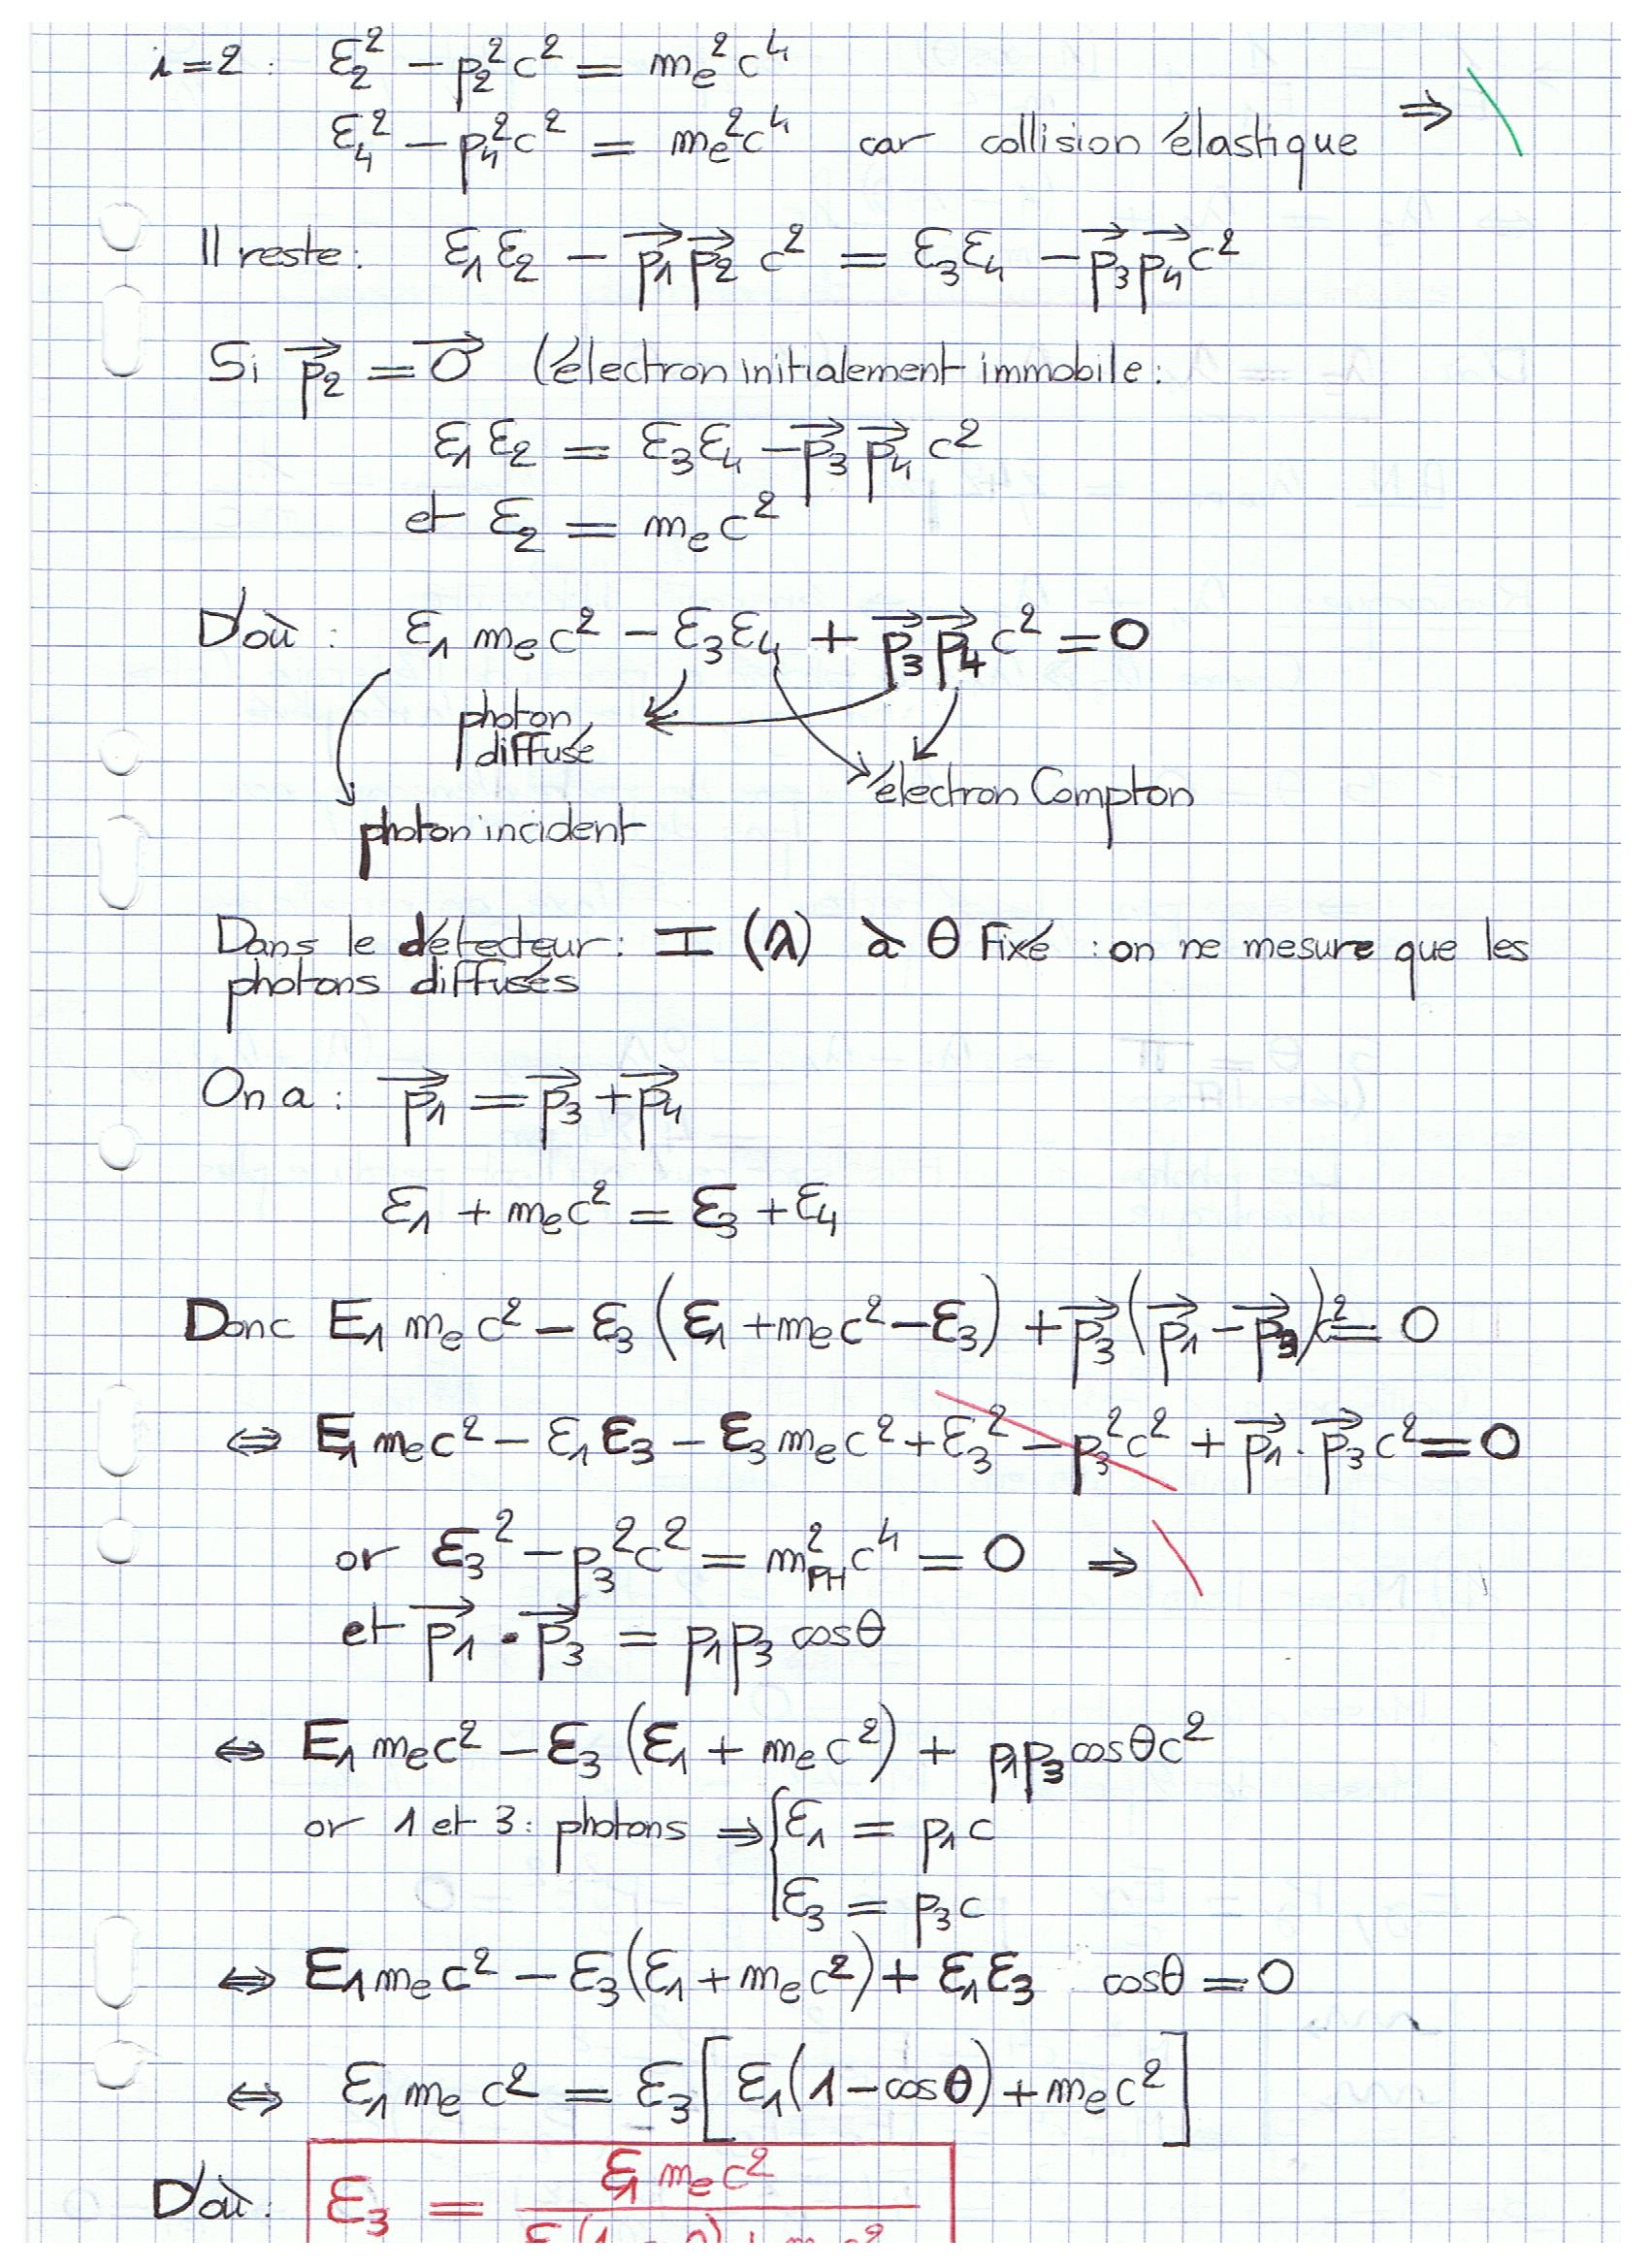 i=2 : ε₂² − p₂²c² = mₑ²c⁴
ε₄² − p₄²c² = mₑ²c⁴ car collision élastique ⇒ \
Il reste : ε₁ε₂ − p₁⃗ p₂⃗ c² = ε₃ε₄ − p₃⃗ p₄⃗ c²
Si p₂⃗ = 0⃗ (électron initialement immobile :
ε₁ε₂ = ε₃ε₄ − p₃⃗ p₄⃗ c²
et ε₂ = mₑc²
D'où : ε₁ mₑc² − ε₃ε₄ + p₃⃗ p₄⃗ c² = 0
photon
diffusé
électron Compton
photon incident
Dans le détecteur : I (λ) à θ Fixé : on ne mesure que les
photons diffusés
On a : p₁⃗ = p₃⃗ + p₄⃗
ε₁ + mₑc² = ε₃ + ε₄
Donc E₁ mₑc² − ε₃ (ε₁ + mₑc² − ε₃) + p₃⃗ (p₁⃗ − p₃⃗)c² = 0
⇔ E₁ mₑc² − ε₁ε₃ − ε₃ mₑc² + ε₃² − p₃²c² + p₁⃗ . p₃⃗ c² = 0
or ε₃² − p₃²c² = m²PH c⁴ = 0 ⇒ \
et p₁⃗ • p₃⃗ = p₁p₃ cosθ
⇔ E₁ mₑc² − ε₃ (ε₁ + mₑc²) + p₁p₃ cosθc²
or 1 et 3 : photons ⇒ { ε₁ = p₁c
ε₃ = p₃c
⇔ E₁ mₑc² − ε₃(ε₁ + mₑc²) + ε₁ε₃ cosθ = 0
⇔ ε₁ mₑ c² = ε₃ [ ε₁(1 − cosθ) + mₑc² ]
D'où : ε₃ = ε₁ mₑc²